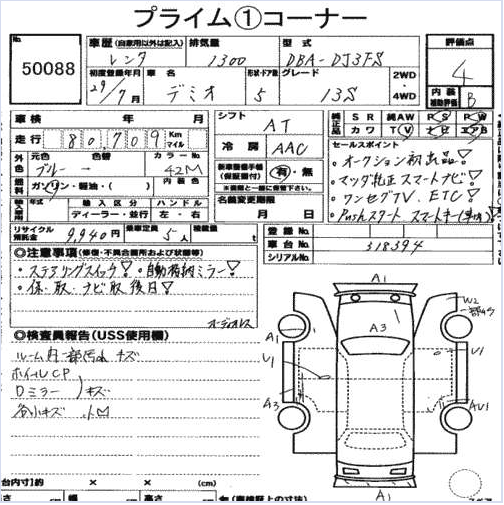 プライム①コーナー
No.
50088
車歴(自家用以外は記入) 排気量 型式
レンタ 1300 DBA-DJ3FS
初度登録年月 車名 形状・ドア数 グレード
29/7月 デミオ 5 13S
2WD
4WD
評価点
4
内装
補助評価 B
車検 年 月
走行 80,709 Km マイル
シフト
AT
冷房 AAC
純正品 SR 純AW PS PW
カワ TV ナビ エアB
外色 元色 色替 カラーNo.
ブルー 42M
燃料 ガソリン・軽油・( ) 内装色
新車整備手帳
(保証書付) 有・無
名義変更期限
月 日
セールスポイント
・オークション初出品!
・マツダ純正スマートナビ!
・ワンセグTV、ETC!
・Pushスタート スマートキー
輸入車 年式 輸入区分 ハンドル
ディーラー・並行 左・右
リサイクル預託金 9,940円 乗車定員 5人 積載量 t
登録No.
車台No. 318394
シリアルNo.
◎注意事項(修復・不具合箇所および状態等)
・ステアリングスイッチ! ・自動格納ミラー!
・保、取、ナビ取後日!
オーディオレス
◎検査員報告(USS使用欄)
ルーム内一部汚れ キズ
ホイールCP
Dミラー キズ
各小キズ
A1
W2
A1
A3
U1
U1
A3
AU1
A1
台内寸約 × × (cm)